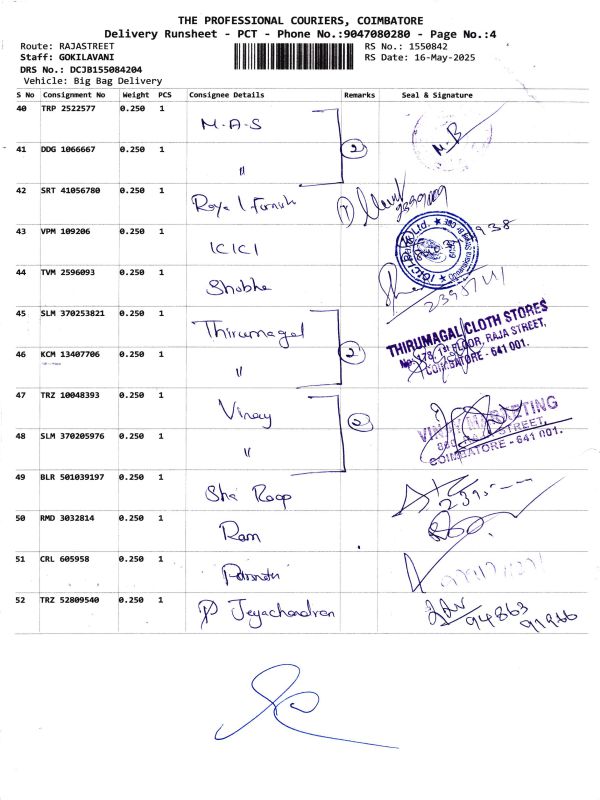 THE PROFESSIONAL COURIERS, COIMBATORE
Delivery Runsheet - PCT - Phone No.:9047080280 - Page No.:4
Route: RAJASTREET
RS No.: 1550842
Staff: GOKILAVANI
RS Date: 16-May-2025
DRS No.: DCJB155084204
Vehicle: Big Bag Delivery
S No Consignment No Weight PCS Consignee Details Remarks Seal & Signature
40 TRP 2522577 0.250 1 M-A-S
41 DDG 1066667 0.250 1 " 2 M.B
42 SRT 41056780 0.250 1 Royal Furnish
43 VPM 109206 0.250 1 ICICI
44 TVM 2596093 0.250 1 Shobha
45 SLM 370253821 0.250 1 Thirumagal
THIRUMAGAL CLOTH STORES
No. 178, 1st FLOOR, RAJA STREET,
COIMBATORE - 641 001.
46 KCM 13407706 0.250 1 " 2
47 TRZ 10048393 0.250 1 Vinay 2
VINAY MARKETING
STREET,
COIMBATORE - 641 001.
48 SLM 370205976 0.250 1 "
49 BLR 501039197 0.250 1 Sha Roop
50 RMD 3032814 0.250 1 Ram
51 CRL 605958 0.250 1
52 TRZ 52809540 0.250 1 P Jeyachandran
94863
91966